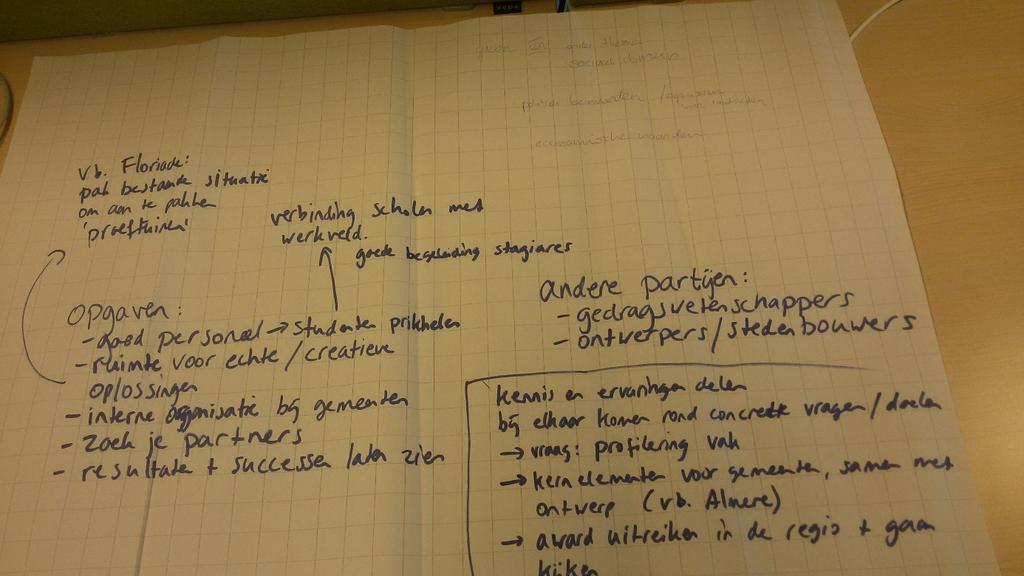 groen en ander thema
sociaal domein
economische waarden
vb. Floriade:
pak bestaande situatie
om aan te pakken
'proeftuinen'
verbinding scholen met
werkveld.
goede begeleiding stagiares
Opgaven:
- goed personeel → studenten prikkelen
- ruimte voor echte/creatieve
oplossingen
- interne organisatie bij gemeenten
- zoek je partners
- resultaten + successen laten zien
andere partijen:
- gedragswetenschappers
- ontwerpers/stedenbouwers
kennis en ervaringen delen
bij elkaar komen rond concrete vragen/doelen
→ vraag: profilering vak
→ kernelementen voor gemeenten, samen met
ontwerp (vb. Almere)
→ award uitreiken in de regio + gaan
kijken